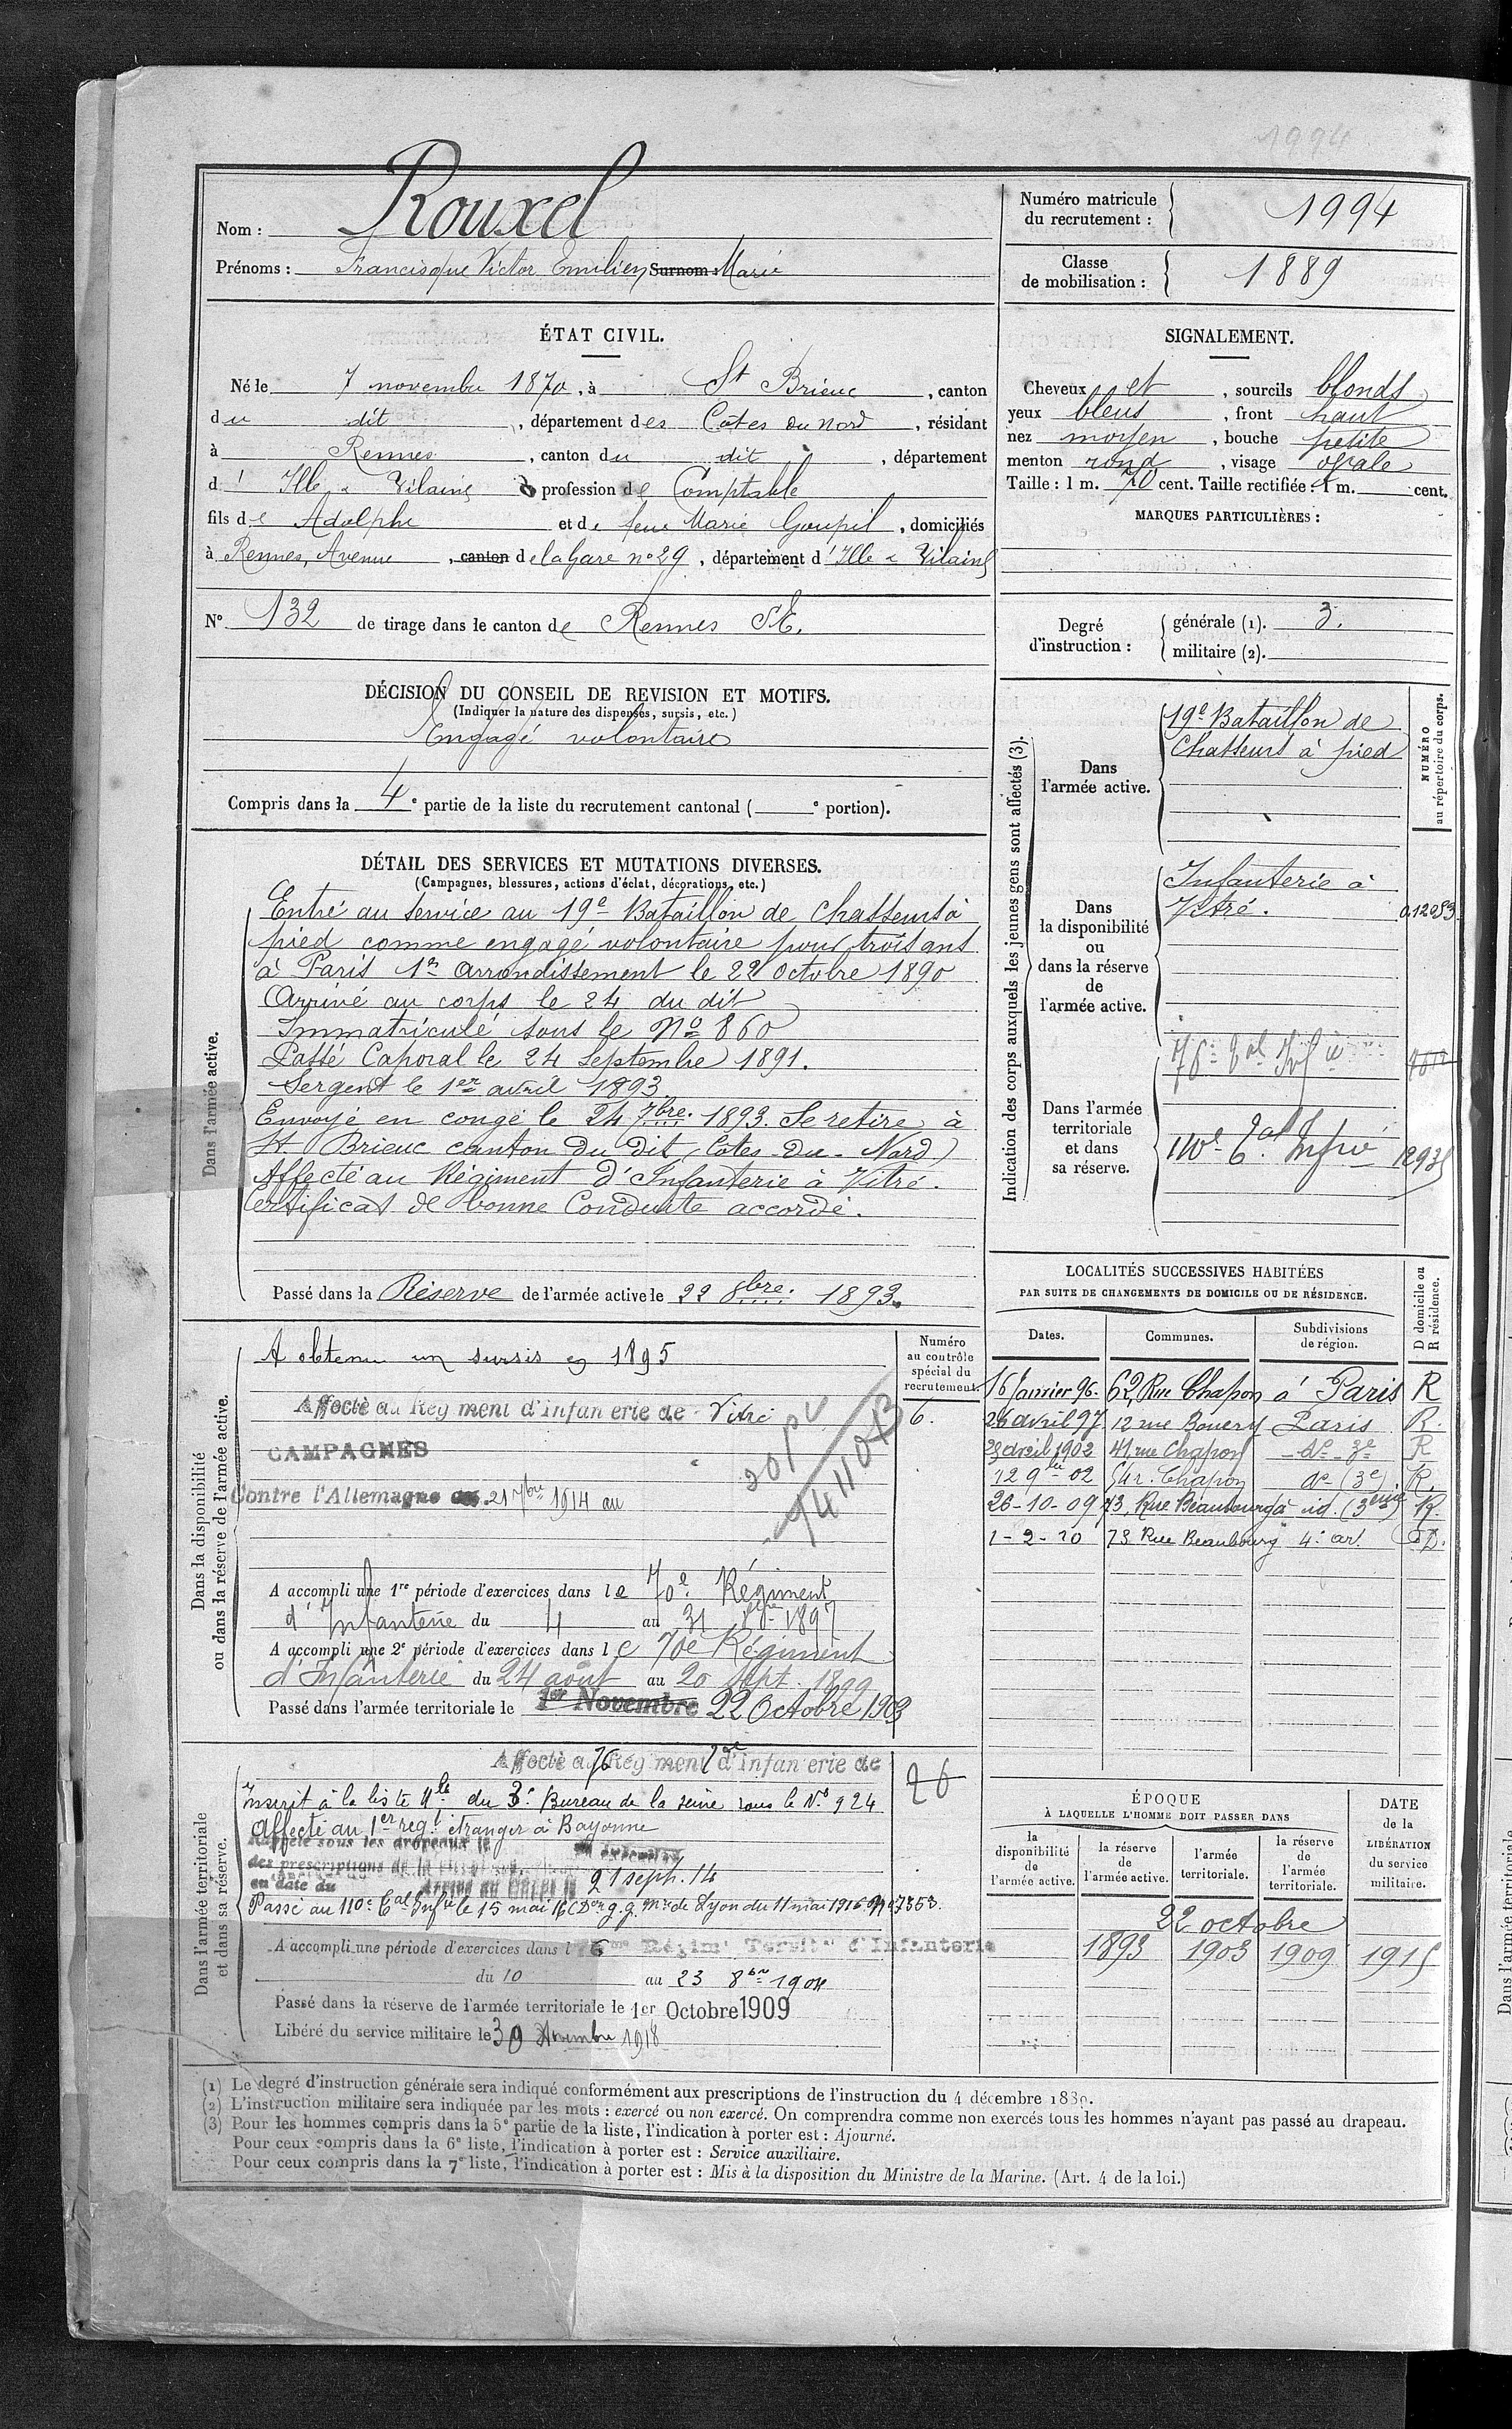 1994
Nom : Rouxel
Prénoms : Francisque Victor Emilien Surnom : Marie
Numéro matricule du recrutement : 1994
Classe de mobilisation : 1889
ÉTAT CIVIL.
Né le 7 novembre 1870, à St Brieuc, canton
du dit, département des Côtes du Nord, résidant
à Rennes, canton du dit, département
d' Ille & Vilaine profession de Comptable
fils de Adolphe et de feue Marie Goupil, domiciliés
à Rennes, Avenue, canton de la Gare n° 29, département d'Ille & Vilaine
N° 132 de tirage dans le canton de Rennes S.E.
SIGNALEMENT.
Cheveux et, sourcils blonds
yeux bleus, front haut
nez moyen, bouche petite
menton rond, visage ovale
Taille : 1 m. 70 cent. Taille rectifiée : 1 m. cent.
MARQUES PARTICULIÈRES :
Degré d'instruction :
générale (1). 3.
militaire (2).
DÉCISION DU CONSEIL DE REVISION ET MOTIFS.
(Indiquer la nature des dispenses, sursis, etc.)
Engagé volontaire
Compris dans la 4e partie de la liste du recrutement cantonal ( e portion).
DÉTAIL DES SERVICES ET MUTATIONS DIVERSES.
(Campagnes, blessures, actions d'éclat, décorations, etc.)
Dans l'armée active.
Entré au service au 19e Bataillon de chasseurs à
pied comme engagé volontaire pour trois ans
à Paris 1er arrondissement le 22 octobre 1890
Arrivé au corps le 24 du dit
Immatriculé sous le No 860
Passé Caporal le 24 septembre 1891.
Sergent le 1er avril 1893
Envoyé en congé le 24 7bre. 1893. Se retire à
St. Brieuc canton du dit (Côtes-du-Nord)
Affecté au Régiment d'Infanterie à Vitré.
Certificat de bonne Conduite accordé.
Passé dans la Réserve de l'armée active le 22 8bre. 1893.
Indication des corps auxquels les jeunes gens sont affectés (3).
NUMÉRO au répertoire du corps.
Dans l'armée active.
19e Bataillon de
Chasseurs à pied
Dans la disponibilité ou dans la réserve de l'armée active.
Infanterie à
Vitré. 012053
Dans l'armée territoriale et dans sa réserve.
76e
110e Cal Infie
LOCALITÉS SUCCESSIVES HABITÉES
PAR SUITE DE CHANGEMENTS DE DOMICILE OU DE RÉSIDENCE.
Dates. Communes. Subdivisions de région. D domicile ou R résidence.
16 Janvier 96. 62, Rue Chapon à Paris R
26 avril 97 12 rue Paris R.
avril 1902 41 rue Chapon do 3e R
12 9bre 02 54 r. Chapon do (3e) R.
26-10-09 73, Rue Beaubourg à id. (3eme) R.
1-2-10 73 Rue Beaubourg 4e ar. D.
Dans la disponibilité ou dans la réserve de l'armée active.
Numéro au contrôle spécial du recrutement.
A obtenu un sursis en 1895
Affecté au Régiment d'Infanterie de Vitré 6.
CAMPAGNES
Contre l'Allemagne du 21 7bre 1914 au
A accompli une 1re période d'exercices dans le 70e Régiment
d'Infanterie du 4 au 31 1897
A accompli une 2e période d'exercices dans le 70e Régiment
d'Infanterie du 24 août au 20 sept. 1899
Passé dans l'armée territoriale le 1er Novembre 22 Octobre 1903
Dans l'armée territoriale et dans sa réserve.
Affecté au 76 Régiment d'Infanterie de
26
Inscrit à la liste du 3e Bureau de la Seine sous le No 924
Affecté au 1er regt étranger à Bayonne
Rappelé sous les drapeaux le
des prescriptions
en date du Arrivé au corps le 21 sept. 14
Passé au 110e Cal Infie le 15 mai 16 Lyon du 11 mai 1916
A accompli une période d'exercices dans l 76 me Régimt Territal d'Infanterie
du 10 au 23 8bre 1904
Passé dans la réserve de l'armée territoriale le 1er Octobre 1909
Libéré du service militaire le 30 1918
ÉPOQUE
À LAQUELLE L'HOMME DOIT PASSER DANS
la disponibilité de l'armée active.
la réserve de l'armée active.
l'armée territoriale.
la réserve de l'armée territoriale.
DATE de la LIBÉRATION du service militaire.
22 octobre
1893 1903 1909 1915
(1) Le degré d'instruction générale sera indiqué conformément aux prescriptions de l'instruction du 4 décembre 1889.
(2) L'instruction militaire sera indiquée par les mots : exercé ou non exercé. On comprendra comme non exercés tous les hommes n'ayant pas passé au drapeau.
(3) Pour les hommes compris dans la 5e partie de la liste, l'indication à porter est : Ajourné.
Pour ceux compris dans la 6e liste, l'indication à porter est : Service auxiliaire.
Pour ceux compris dans la 7e liste, l'indication à porter est : Mis à la disposition du Ministre de la Marine. (Art. 4 de la loi.)